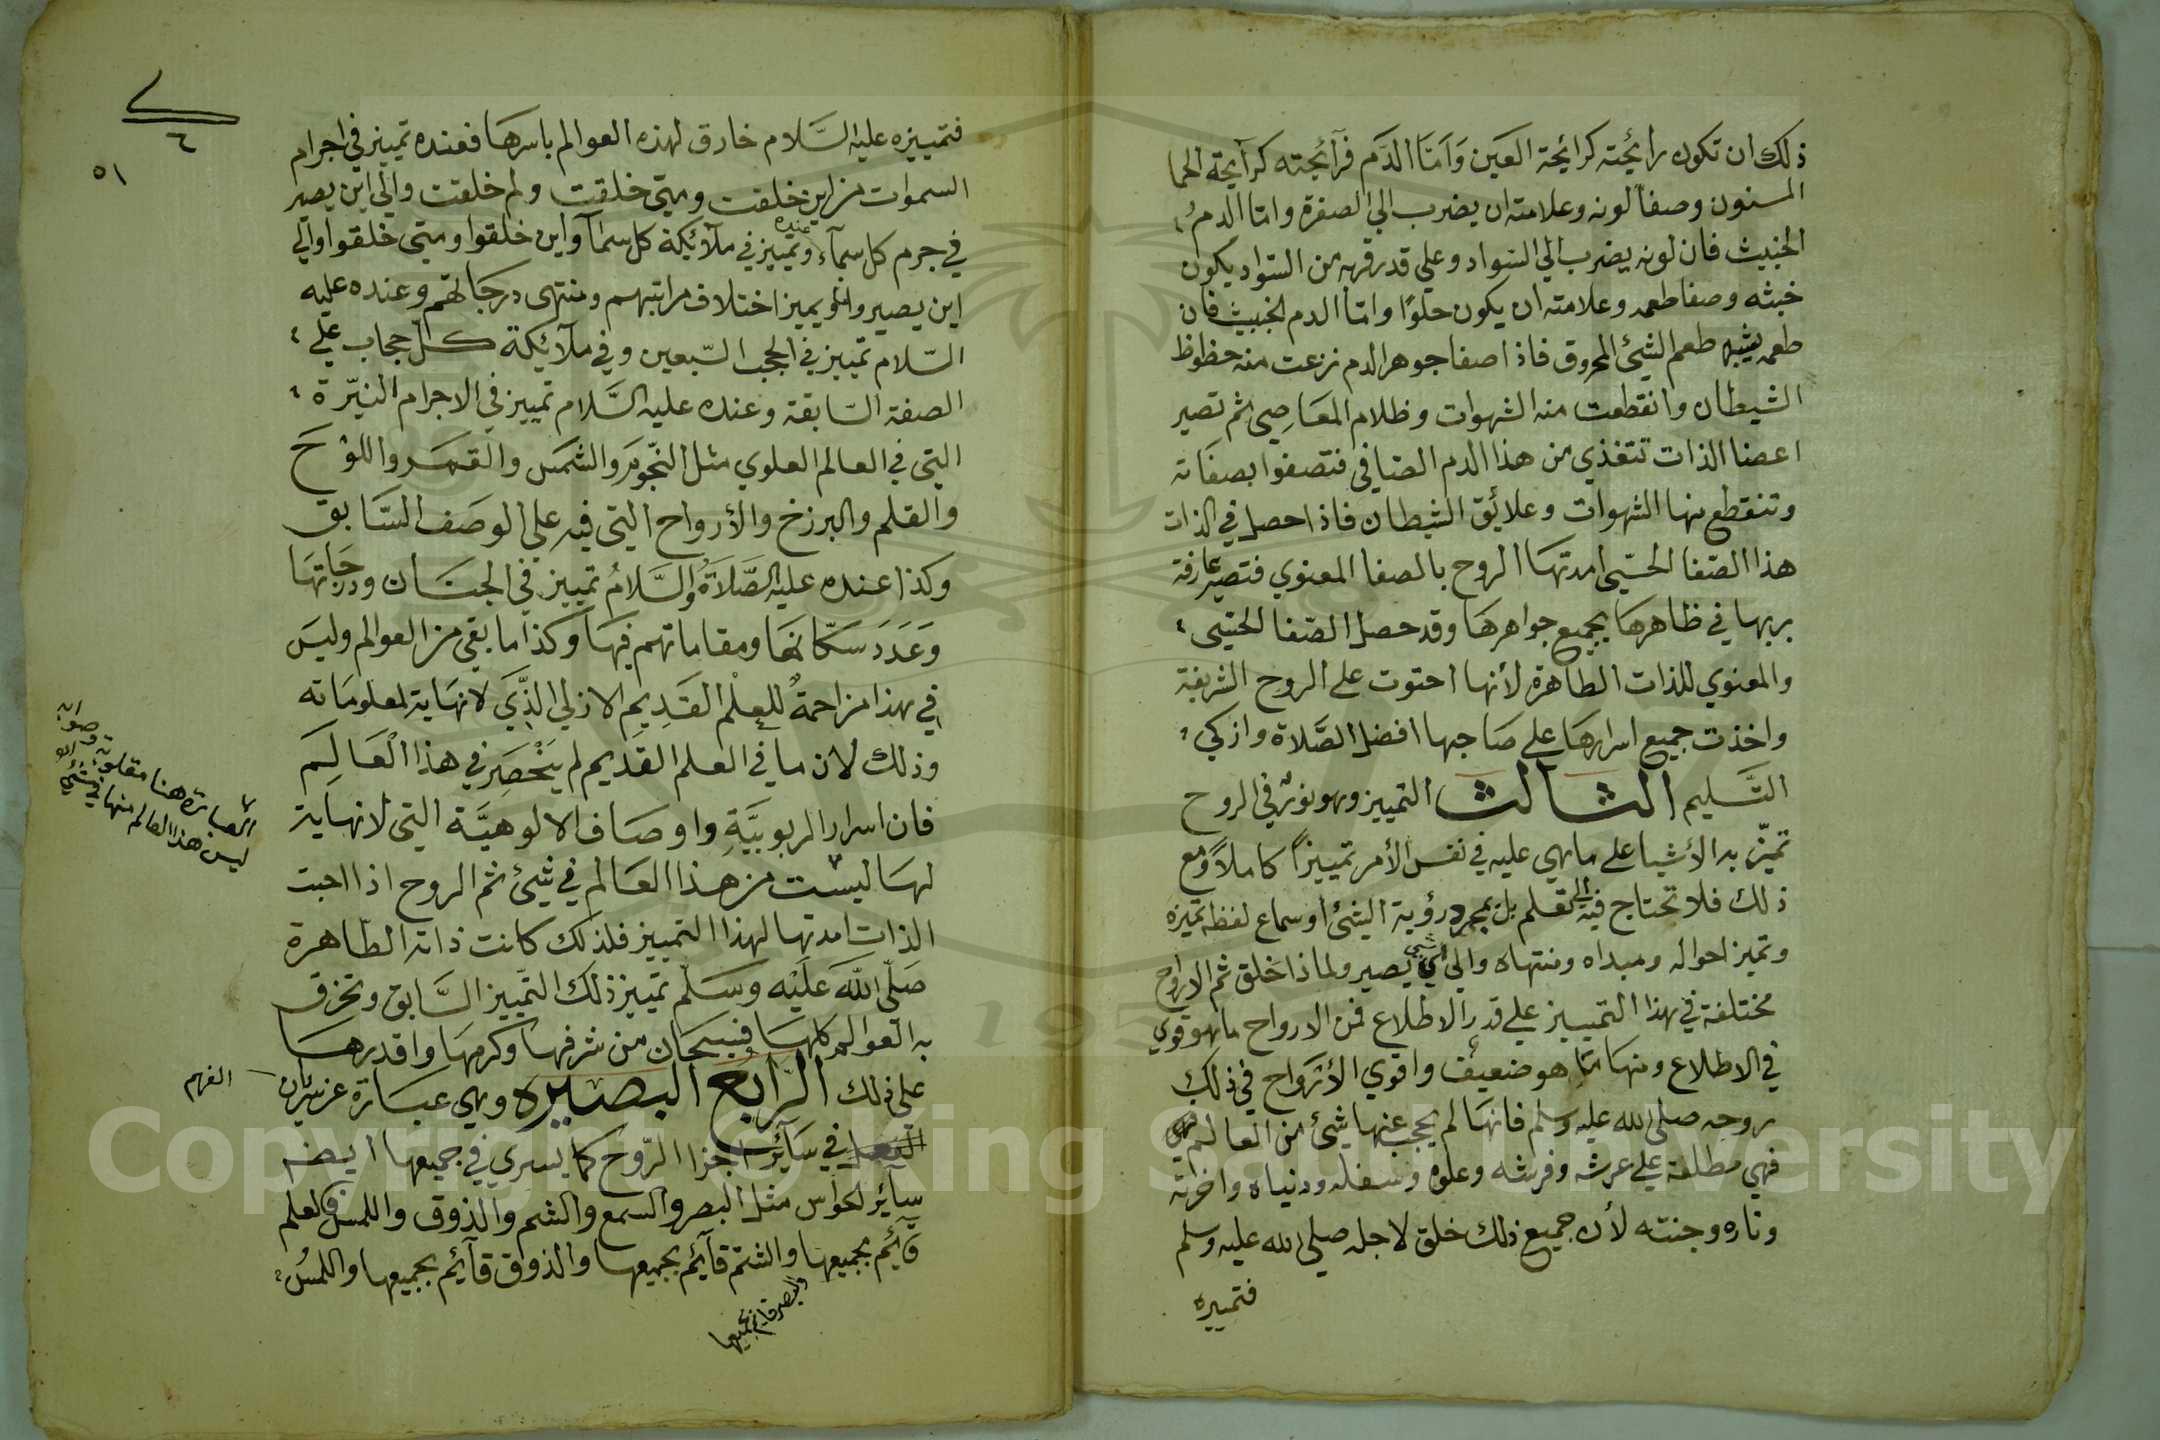 ذلك ان تكون رايحته كرائحة العجين وامّا الدّم فرآئحته كرآيحة الحما
المسنون وصفا لونه وعلامته ان يضرب الي الصفرة وامّا الدم
الخبيث فان لونه يضرب الي السواد وعلي قدر قربه من السّواد يكون
خبثه وصفا طعمه وعلامته ان يكون حلوًا وامّا الدم الخبيث فان
طعمه يشبه طعم الشئ المحروق فاذا صفا جوهر الدم نزعت منه حظوظ
الشيطان وانقطعت منه الشهوات وظلام المعَاصِي ثم تصير
اعضا الذات تتغذي من هذا الدم الصّافي فتصفوا بصفاته
وتنقطع منها الشهوات وعلائق الشيطان فاذا حصل في الذات
هذا الصّفا الحسّي امدتهَا الروح بالصفا المعنوي فتصير عارفة
بربها في ظاهرهَا بجميع جواهرهَا وقد حصل الصّفا الحسّي
والمعنوي للذات الطاهرة لأنها احتوت على الروح الشريفة
واخذت جميع اسرارهَا علي صَاحبها افضل الصَّلاة وازكي
التَّسليم الثالث التمييز وهو نور في الروح
تميّز به الأشيا علي ما هي عليه في نفس الأمر تمييزًا كاملاً ومع
ذلك فلا تحتاج فيه الي تعلم بل بمجرد رؤية الشئ او سماع لفظه تميزه
وتميز احواله ومبداه ومنتهاه والي اي شي يصير ولماذا خلق ثم الارواح
مختلفة في هذا التمييز علي قدر الاطلاع فمن الارواح ما هو قوي
في الاطلاع ومنهَا ما هو ضعيف واقوي الأرْوَاح في ذلك
روحه صلى الله عليه وسلم فانهَا لم يحجب عنها شئ من العالم
فهي مطلعة علي عرشه وفرشه وعلوه وسفله ودنياه واخرته
وناره وجنته لأن جميع ذلك خلق لاجله صلي الله عليه وسلم
فتمييزه
٦
٥١
فتمييزه عليه السَّلام خارق لهذه العوالم باسرهَا فعنده تمييز في اجرام
السموات من اين خلقت ومتي خلقت ولم خلقت والي اين يصير
في جرم كل سمآء وعنده تمييز في ملآئكة كل سمآ واين خلقوا ومتي خلقوا والي
اين يصير ويميز اختلاف مراتبهم ومنتهى درجَاتهم وعنده عليه
السّلام تمييز في الحجب السّبعين وفي ملآئكة كل حجاب علي
الصفة السّابقة وعنده عليه السَّلام تمييز في الاجرام النيّرة
التي في العالم العلوي مثل النّجوم والشمس والقمَر واللوْح
والقلم والبرزخ والأرواح التي فيه علي الوصَف السَّابق
وكذا عنده عليه الصَّلاةُ والسَّلامُ تمييز في الجنَان ودرجَاتهَا
وَعَدَد سَكّانهَا ومقاماتهم فيهَا وكذا ما بقي من العوالم وليسَ
في هذا مزاحمةٌ للعِلْم القَدِيم الازلي الذّي لا نهَاية لمعلومَاته
وذلك لان ما في العلم القدِيم لم يَنْحَصِر في هذا الْعَالِم
فان اسرار الربوبيَّةِ واوصَاف الالوهيَّة التي لا نهاية
لهَا ليسْت من هذا العَالم في شيئ ثم الروح اذا احبت
الذات امدتها لهذا التمييز فلذلك كانت ذاته الطّاهرة
صَلّي اللهَ عَلَيْه وسَلّم تمييز ذلك التّمييز السَّابق وتخرق
به العوالم كلهَا فسبحَان من شرفهَا وكرمهَا واقدرهَا
علي ذلك الرَّابع البصيره وهي عبَارة عن سريان
الفهم
في سَآئر اجزا الرّوح كما يسري في جميعها ايضا
سآئر الحواس مثل البصر والسمع والشم والذوق واللمس فالعلم
قآئم بجميعها والشمّ قآئم بجميعها والذوق قآئم بجميعها واللمسُ
والبصر قايم بجميعها
العبارة هنا مقلوبة وصوابه
ليس هذا العالم منها في شئ
Copyright © King Saud University
195